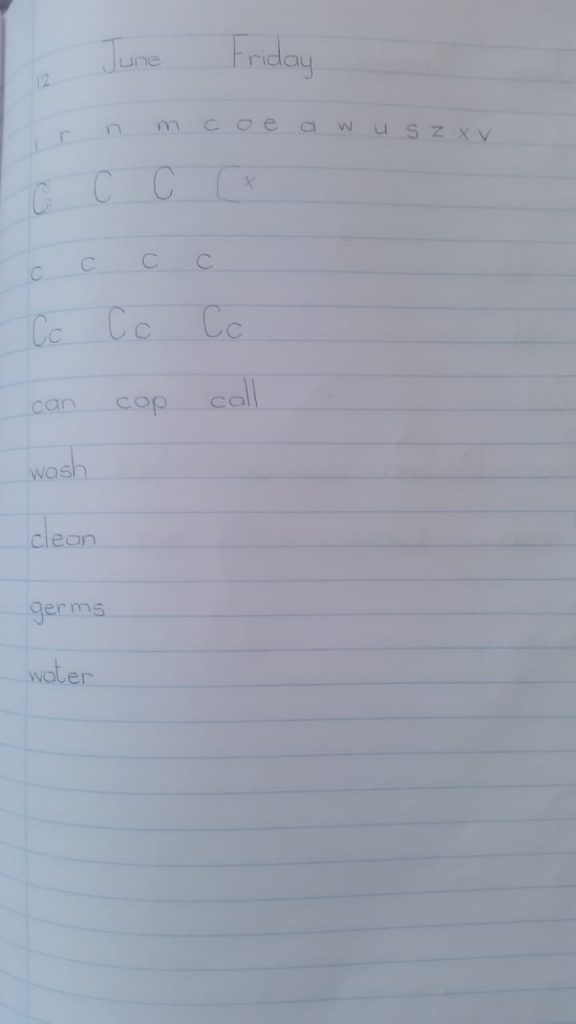 12 June Friday
i r n m c o e a w u s z x v
C C C C x
c c c c
Cc Cc Cc
can cap call
wash
clean
germs
water